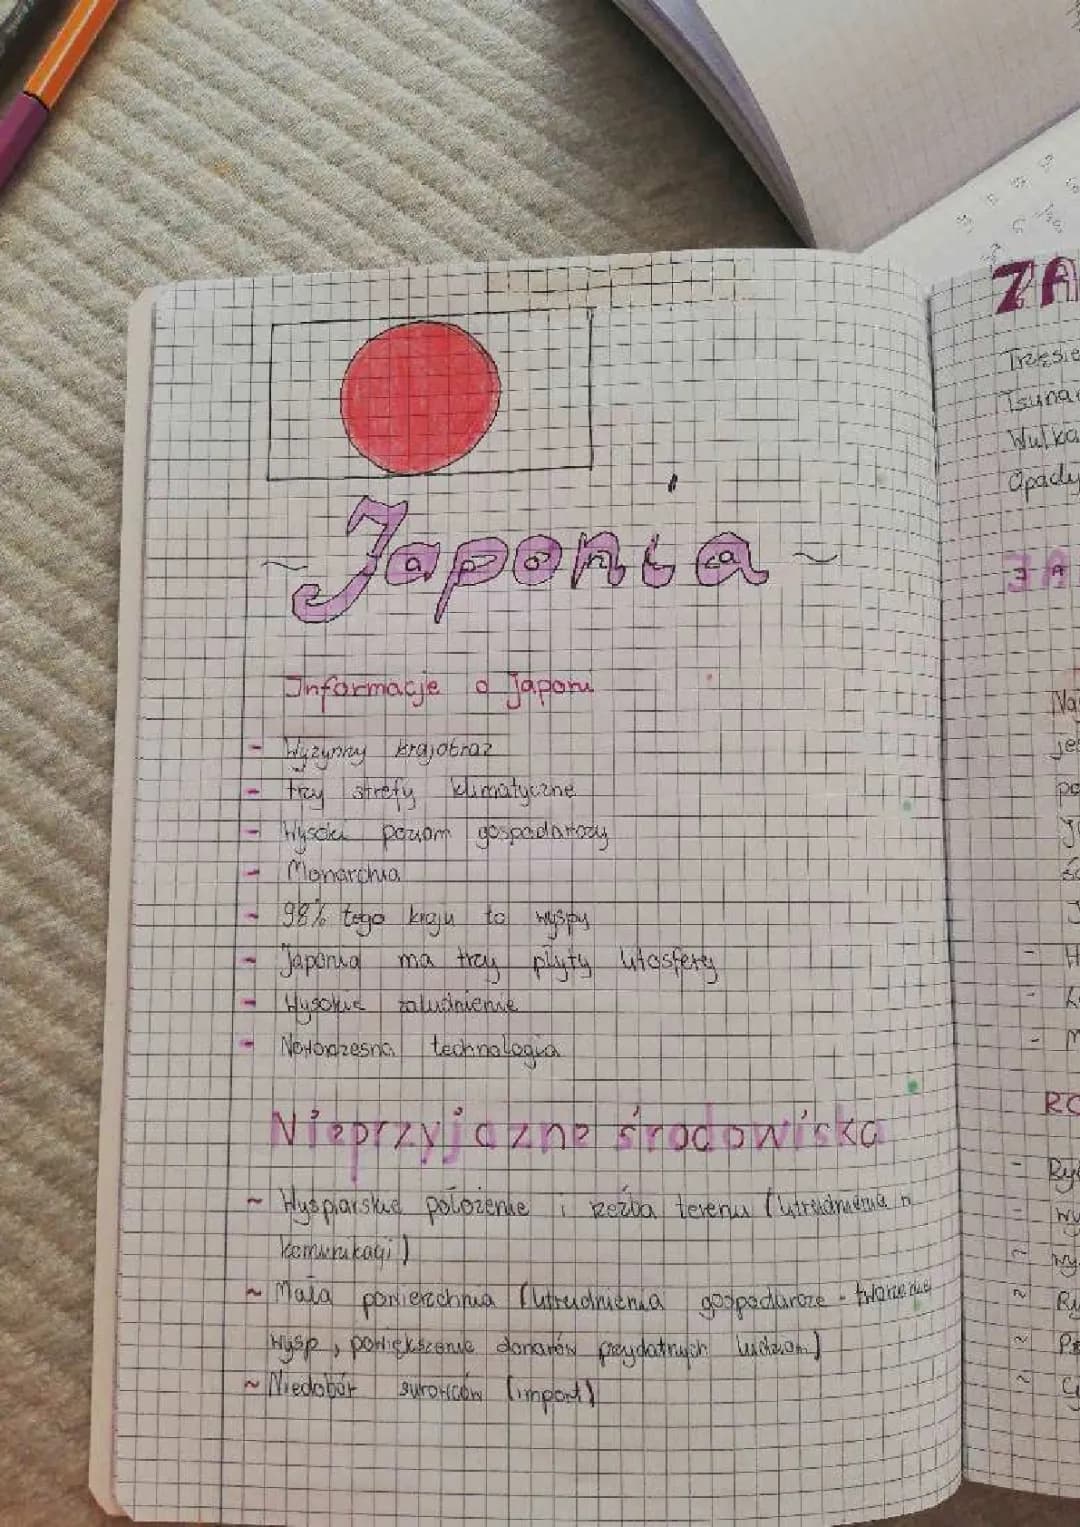 ~ Japonia ~
Informacje o Japonii
- Wyżynny krajobraz
- trzy strefy klimatyczne
- Wysoki poziom gospodarczy
- Monarchia
- 98% tego kraju to wyspy
- Japonia ma trzy płyty litosfery
- Wysokie zaludnienie
- Nowoczesna technologia
Nieprzyjazne środowiska
~ Wyspiarskie położenie i rzeźba terenu (utrudnienia w
komunikacji)
~ Mała powierzchnia (utrudnienia gospodarcze - tworzenie
wysp, powiększenie obszarów przydatnych ludziom)
~ Niedobór surowców (import)
ZA
Trzęsie
Tsuna
Wulka
Opady
ZA
Na
je
po
- H
- M
RO
- Ry
- wy
~ wy
~ Ry